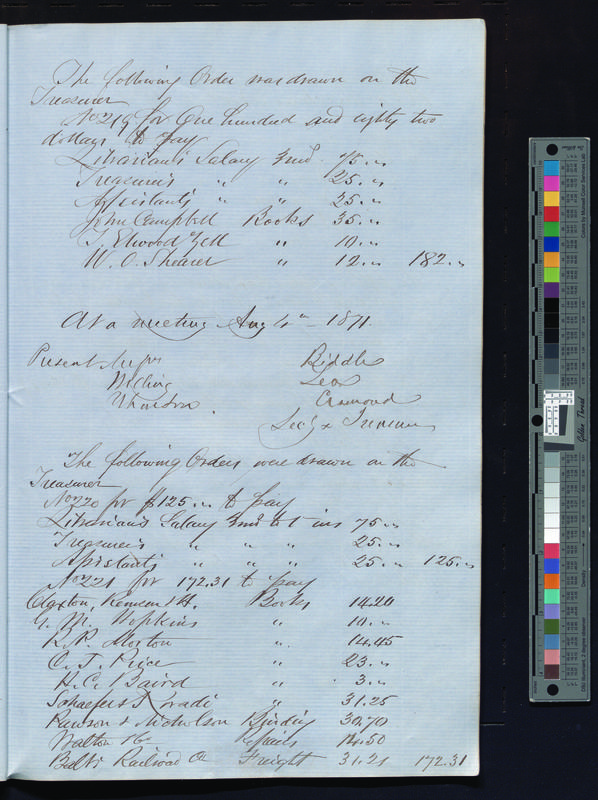 The following Order was drawn on the
Treasurer
No 219 for One hundred and eighty two
dollars to pay
Librarian's Salary 3 mo. 75."
Treasurer's " " 25."
Assistant's " " 25."
John Campbell Books 35."
T. Elwood Zell " 10."
W. O. Shearer " 12." 182."
At a meeting Aug 4th 1871.
Present Messrs Biddle
Welling Lea
Wharton. Ormond
Secy & Treasurer
The following Orders were drawn on the
Treasurer
No 220 for $125." to pay
Librarian's Salary 3 mo to 1 ins 75."
Treasurer's " " " 25."
Assistant's " " " 25." 125."
No 221 for 172.31 to pay
Claxton, Remsen & H. Books 14.20
G. M. Hopkins " 10."
R. P. Morton " 14.45
O. T. Price " 23."
H. C. Baird " 3."
Schaefer & Koradi " 31.25
Pawson & Nicholson Binding 30.70
Walton & Co 14.50
Balto Railroad Co Freight 31.21 172.31
Golden Thread